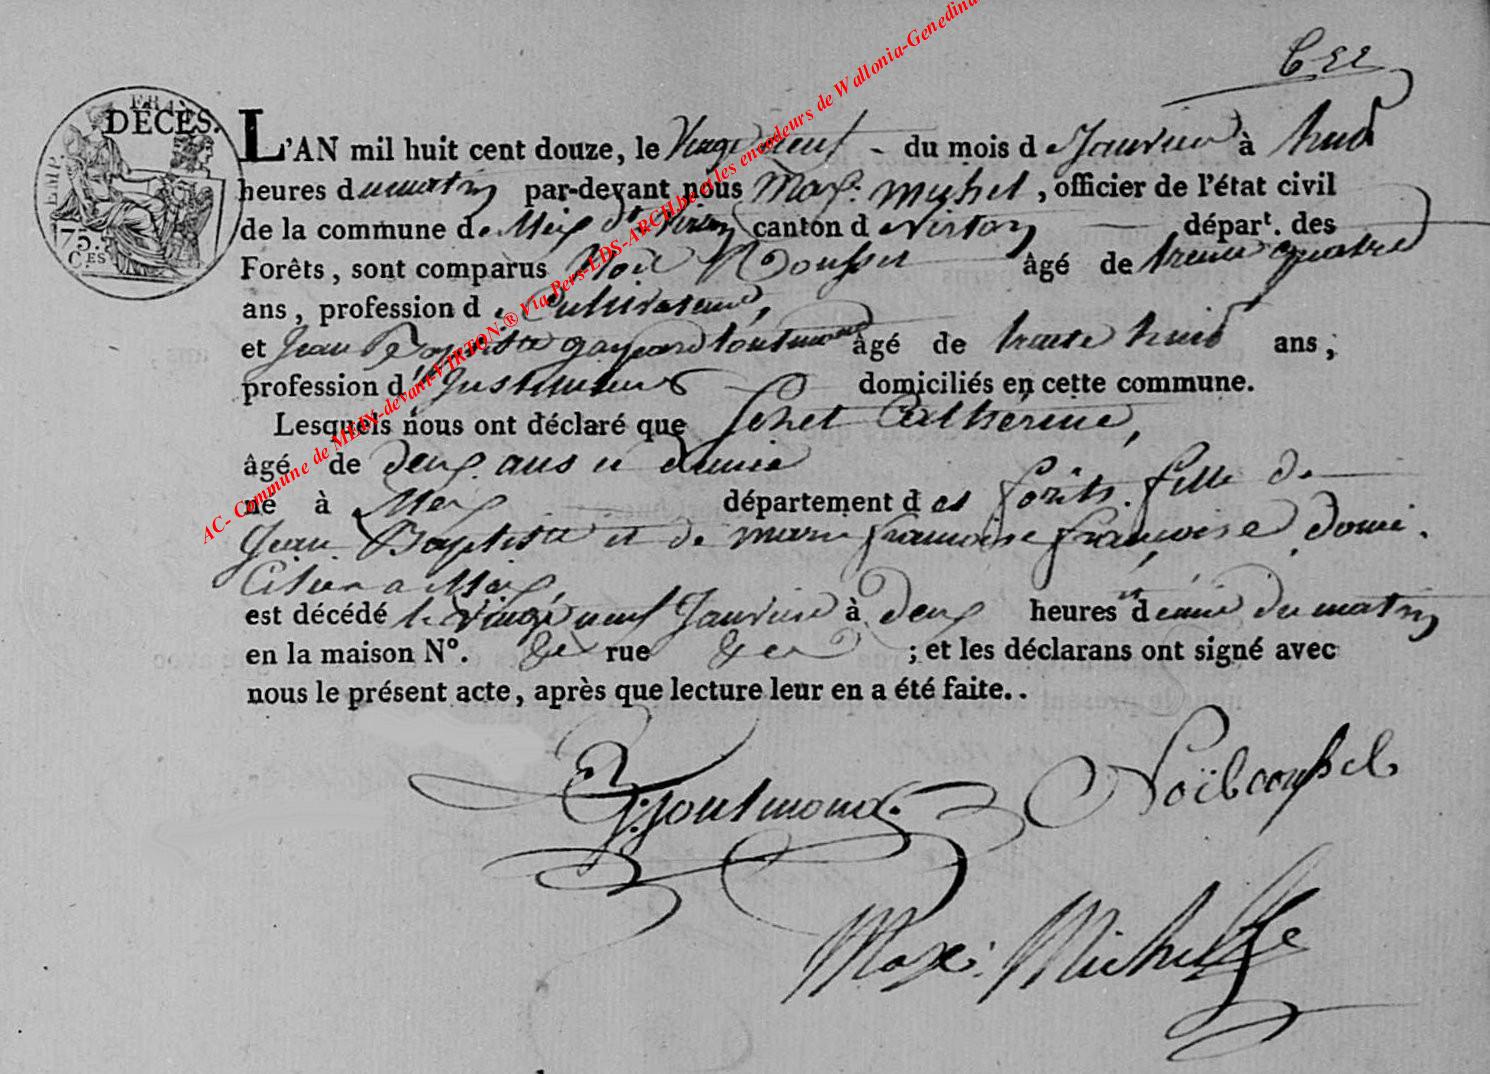 DÉCÈS.
FRA
EMP.
75.
C.ES
L'AN mil huit cent douze, le Vingt neuf - du mois de Janvier à huit
heures du matin par-devant nous Max. Michel, officier de l'état civil
de la commune de Meix dt Virton canton de Virton dépar.t des
Forêts, sont comparus Noël âgé de trente quatre
ans, profession de Cultivateur,
et Jean Baptiste toutmond âgé de trente huit ans,
profession d' Instituteur domiciliés en cette commune.
Lesquels nous ont déclaré que Catherine,
âgé de deux ans et demie
né à Meix département des forêts. fille de
Jean Baptiste et de marie francoise françoise, domi-
ciliés a Meix,
est décédé le vingt neuf Janvier à deux heures et demie du matin
en la maison N°. rue ; et les déclarans ont signé avec
nous le présent acte, après que lecture leur en a été faite..
toutmond. Noël
Maxi. Michel
AC- Commune de MEIX-devant-VIRTON ® Via Pers-EDS-ARCH.be et les encodeurs de Wallonia-Genedina